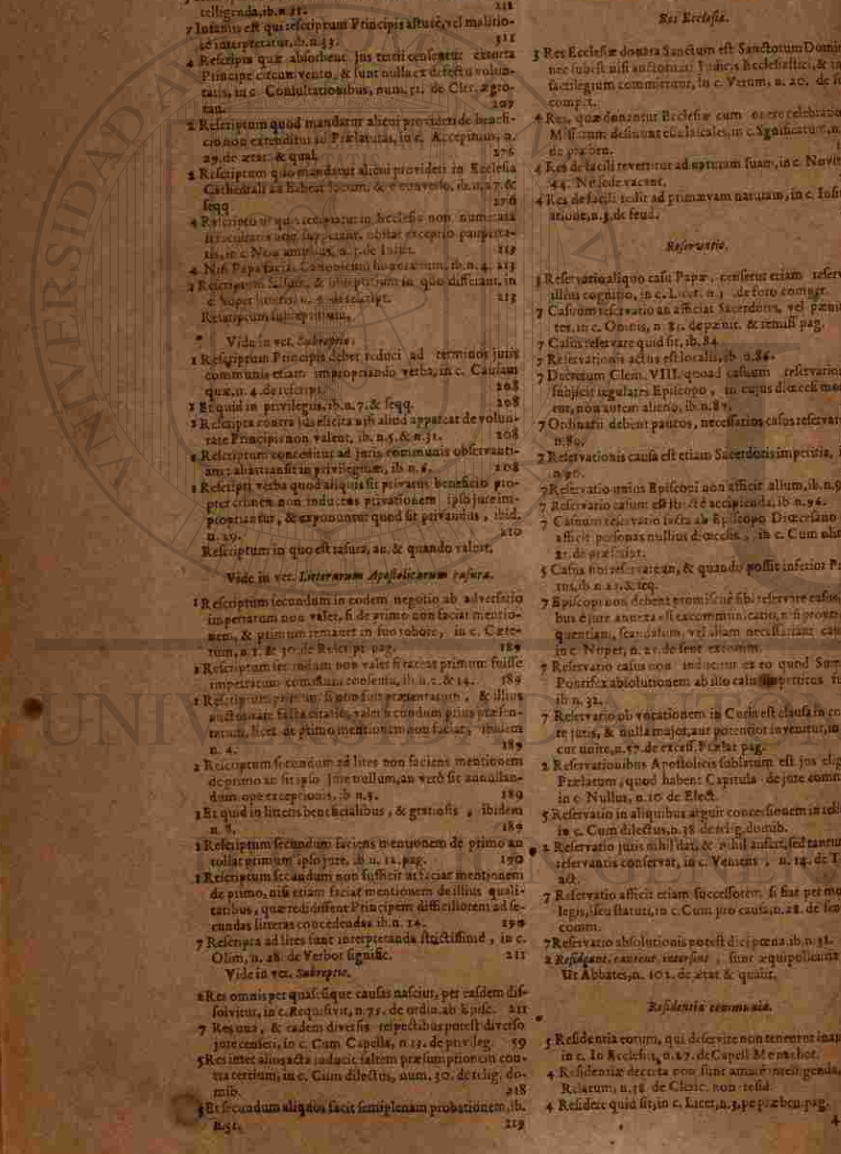 telligenda, ib. n. 21. 212
7 Infamis est qui rescriptum Principis astutè, vel malitio-
sè interpretatur, ib. n. 33. 311
4 Rescripta quæ absorbent Jus tertii censentur extorta
Principe circunvento, & sunt nulla ex defectu volun-
tatis, in c. Consultationibus, num. 11. de Cler. ægro-
tan. 207
2 Rescriptum quod mandatur alicui provideri de benefi-
cio non extenditur ad Prælaturas, in c. Accepimus, n.
29. de ætat. & qual. 276
2 Rescriptum quo mandatur alicui provideri in Ecclesia
Cathedrali an habeat locum, & è converso, ib. n. 27. &
seqq. 276
4 Rescripto ut quis recipiatur in Ecclesia non numerata
obstat exceptio pauperta-
tis, in c. Non amplius, n. 3. de Instit. 213
4 Nisi Papa faciat Canonicum honorarium, ib. n. 4. 213
2 Rescriptum falsum, & subreptitium in quo differant, in
c. Super litteris, n. 5. de rescript. 213
Rescriptum subreptitium,
Vide in ver. Subreptio.
1 Rescriptum Principis debet reduci ad terminos juris
communis etiam impropriando verba, in c. Causam
quæ, n. 4. de rescript. 208
1 Et quid in privilegiis, ib. n. 7. & seqq. 208
1 Rescripta contra jus elicita nisi aliud appareat de volun-
tate Principis non valent, ib. n. 5. & n. 31. 208
1 Rescriptum conceditur ad juris communis observanti-
am: alias transit in privilegium, ib. n. 6. 208
1 Rescripti verba quod aliquis sit privatus beneficio pro-
pter crimen non inducens privationem ipso jure im-
propriantur, & exponuntur quod sit privandus, ibid.
n. 29. 210
Rescriptum in quo est rasura, an, & quando valeat,
Vide in ver. Litterarum Apostolicarum rasura.
1 Rescriptum secundum in eodem negotio ab adversario
impetratum non valet, si de primo non faciat mentio-
nem, & primum remanet in suo robore, in c. Cæte-
rum, n. 1. & 30. de Rescript. pag. 189
1 Rescriptum secundum non valet si taceat primum fuisse
impetratum communi consensu, ib. n. 2. & 14. 189
1 Rescriptum primum si non fuit præsentatum, & illius
auctoritate facta citatio, valet secundum prius præsen-
tatum, licet de primo mentionem non faciat, ibidem
n. 4. 189
2 Rescriptum secundum ad lites non faciens mentionem
de primo an sit ipso Jure nullum, an verò sit annullan-
dum ope exceptionis, ib. n. 5. 189
1 Et quid in litteris beneficialibus, & gratiosis, ibidem
n. 8. 189
1 Rescriptum secundum faciens mentionem de primo an
tollat primum ipso jure, ib. n. 12. pag. 190
1 Rescriptum secundum non sufficit ut faciat mentionem
de primo, nisi etiam faciat mentionem de illius quali-
tatibus, quæ redidissent Principem difficiliorem ad se-
cundas litteras concedendas ib. n. 14. 190
7 Rescripta ad lites sunt interpretanda strictissimè, in c.
Olim, n. 28. de Verbor. signific. 211
Vide in ver. Subreptio.
2 Res omnis per quascũque causas nascitur, per easdem dis-
solvitur, in c. Requisivit, n. 75. de ordin. ab Episc. 211
7 Res una, & eadem diversis respectibus potest diverso
jure censeri, in c. Cum Capella, n. 13. de privileg. 59
5 Res inter alios acta inducit saltem præsumptionem con-
tra tertium, in c. Cum dilectus, num. 30. de relig. do-
mib. 218
5 Et secundum aliquos facit semiplenam probationem, ib.
n. 31. 219
Res Ecclesiæ.
3 Res Ecclesiæ donata Sanctum est Sanctorum Domin
nec subest nisi auctoritati Judicis Ecclesiastici, & in
sacrilegium committitur, in c. Verum, n. 20. de f
compet.
4 Res, quæ donantur Ecclesiæ cum onere celebratio
Missarum desinunt esse laicales, in c. Significatum, n.
de præben.
4 Res de facili revertitur ad naturam suam, in c. Novit
44. Ne sede vacant.
4 Res de facili redit ad primævam naturam, in c. Insi
uatione, n. 3. de feud.
Reservatio.
3 Reservatio aliquo casu Papæ, censetur etiam reserv
illius cognitio, in c. Licet, n. 1. de foro compet.
7 Casuum reservatio an afficiat Sacerdotes, vel pœnit
tes, in c. Omnis, n. 81. de pœnit. & remiss. pag.
7 Casus reservare quid sit, ib. 84
7 Reservationis actus est localis, ib. n. 86.
7 Decretum Clem. VIII. quoad casuum reservatio
subjicit regulares Episcopo, in cujus diœcesi mo
tur, non autem alieno, ib. n. 87.
7 Ordinarii debent paucos, necessarios casos reservare
n. 89.
7 Reservationis causa est etiam Sacerdotis imperitia, i
n. 90.
7 Reservatio unius Episcopi non afficit alium, ib. n. 9
7 Reservatio casuum est strictè accipienda, ib. n. 96.
7 Casuum reservatio facta ab Episcopo Diœcesano
afficit personas nullius diœcesis, in c. Cum olim
21. de præscript.
5 Casus sibi reservare an, & quando possit inferior Pr
tus, ib. n. 22. & seq.
7 Episcopi non debent promiscuè sibi reservare casus,
bus è jure annexa est excommunicatio, nisi propt
quentiam, scandalum, vel aliam necessariam cau
in c. Nuper, n. 21. de sent. excomm.
7 Reservatio casus non inducitur ex eo quod Sum
Pontifex absolutionem ab illo casu impertitus fu
ib. n. 32.
7 Reservatio ob vocationem in Curia est clausa in co
re juris, & nulla major, aut potentior invenitur, in
cut unire, n. 57. de excess. Prælat. pag.
2 Reservationibus Apostolicis sublatum est jus elig
Prælatum, quod habent Capitula de jure comm
in c. Nullus, n. 10 de Elect.
5 Reservatio in aliquibus arguit concessionem in reli
in c. Cum dilectus, n. 38 de relig. domib.
2 Reservatio juris nihil dat, & nihil aufert, sed tantum
reservantis conservat, in c. Veniens, n. 14. de T
act.
7 Reservatio afficit etiam successorem si fiat per mo
legis, seu statuti, in c. Cum pro causa, n. 28. de sen
comm.
7 Reservatio absolutionis potest dici pœna, ib. n. 31.
2 Resideant, caveant, intersint, sunt æquipollentia
Ut Abbates, n. 102. de ætat. & qualit.
Residentia communia.
5 Residentia eorum, qui deservire non tenentur inan
in c. In Ecclesiis, n. 27. de Capell. Monachor.
4 Residentiæ decreta non sunt amarè intelligenda,
Relatum, n. 38. de Cleric. non resid.
4 Residere quid sit, in c. Licet, n. 3. pe præben. pag.
UNIVERSIDAD